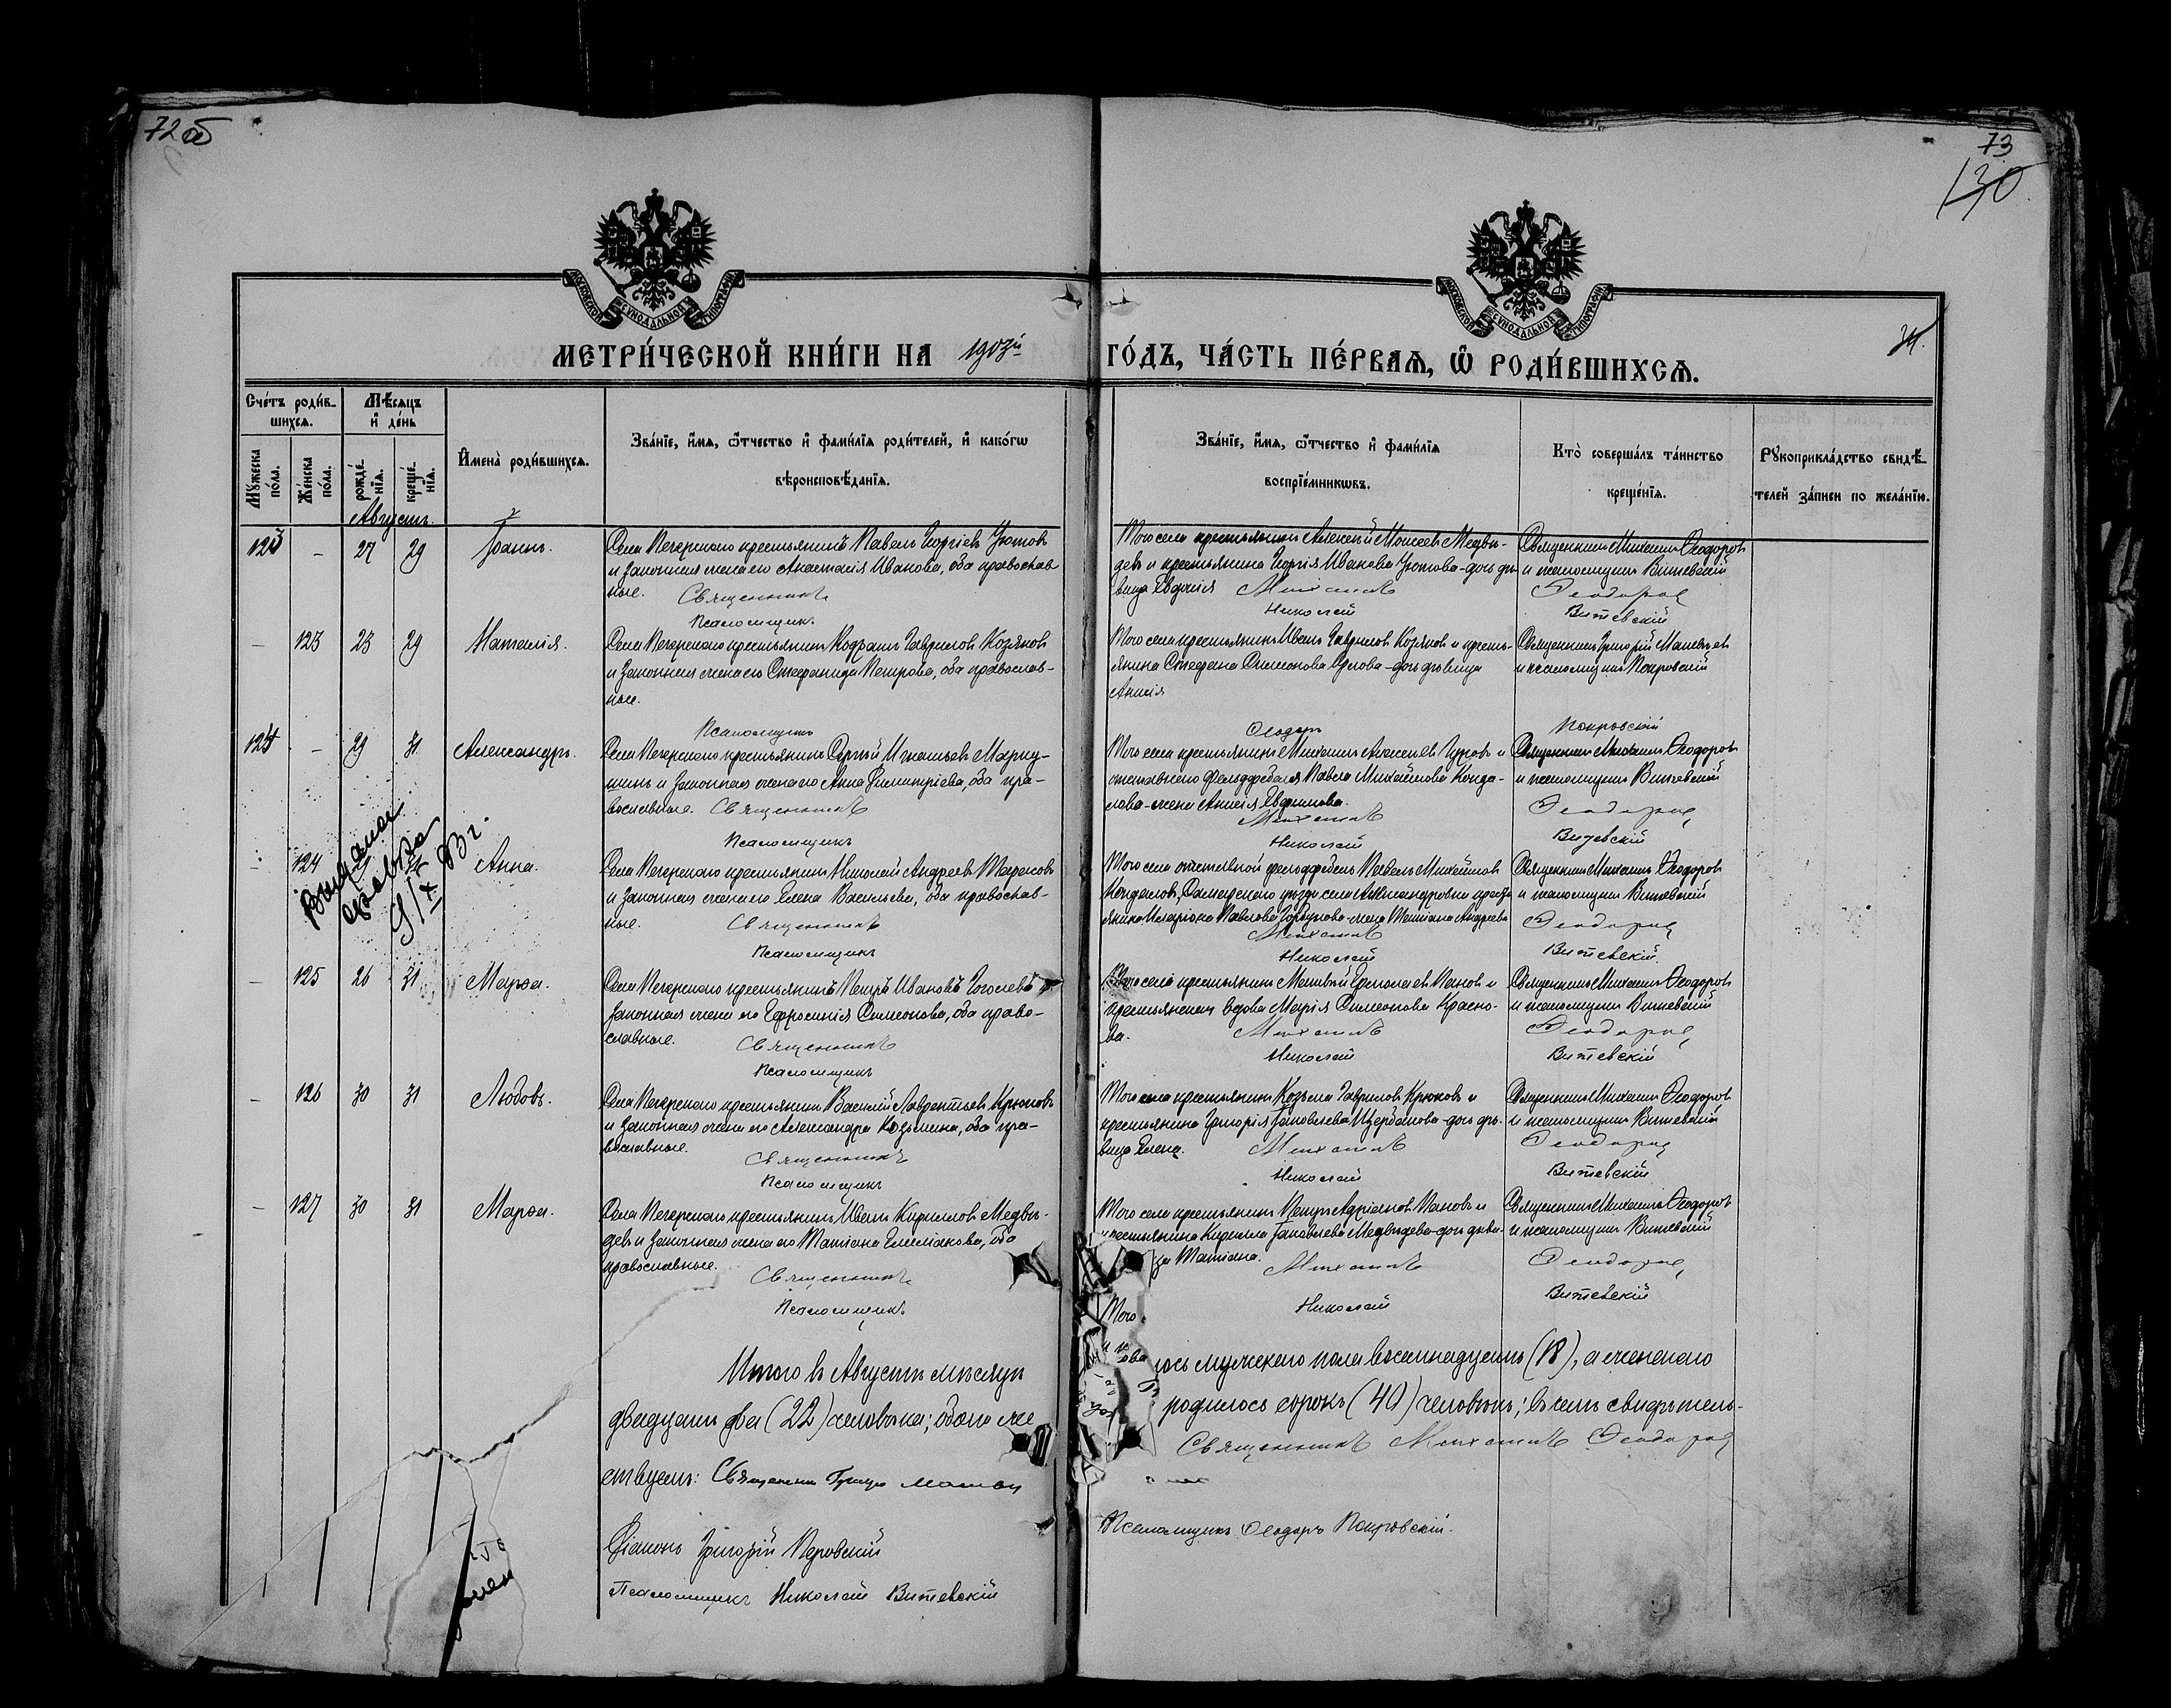 72об
73
130
МОСКОВСКОЙ СѴНОДАЛЬНОЙ ТИПОГРАФІИ
МОСКОВСКОЙ СѴНОДАЛЬНОЙ ТИПОГРАФІИ
МЕТРИ́ЧЕСКОЙ КНИ́ГИ НА 1903й
ГО́ДЪ, ЧА́СТЬ ПЕ́РВАѦ, Ѡ҆ РОДИ́ВШИХСѦ.
Сче́тъ роди́в-
шихсѧ.
Мꙋ́жеска по́ла.
Же́нска по́ла.
Мѣ́сѧцъ
и҆ де́нь
рожде́-
нїѧ.
креще́-
нїѧ.
И҆мена̀ роди́вшихсѧ.
Зва́нїе, и҆́мѧ, ѻ҆́тчество и҆ фами́лїѧ роди́телей, и҆ како́гѡ
вѣроисповѣ́данїѧ.
Зва́нїе, и҆́мѧ, ѻ҆́тчество и҆ фами́лїѧ
воспрїе́мникѡвъ.
Кто̀ соверша́лъ та́инство
креще́нїѧ.
Рꙋкоприкла́дство свидѣ́-
телей за́писи по жела́нїю.
Августъ.
123 – 27 29 Іоаннъ.
Села Печерскаго крестьянинъ Павелъ Георгіевъ Урютовъ
и законная жена его Анастасія Иванова, оба православ-
ные. Священникъ
Псаломщикъ
Того села крестьянинъ Алексѣй Моисеевъ Медвѣ-
девъ и крестьянина Георгія Иванова Урютова-дочь дѣ-
вица Евдокія Михаилъ
Николай
Священникъ Михаилъ Ѳеодоровъ
и псаломщикъ Витевскій
Ѳеодоров
Витевскій
– 123 23 29 Наталія.
Села Печерскаго крестьянинъ Кодратъ Гавриловъ Козяковъ
и законная жена его Стефанида Петрова, оба православ-
ные.
Псаломщикъ
Того села крестьянинъ Иванъ Гавриловъ Козяковъ и кресть-
янина Стефана Симеонова -дочь дѣвица
Анисія
Ѳеодоръ
Священникъ Григорій
и псаломщикъ Покровскій
Покровскій
124 – 29 31 Александръ.
Села Печерскаго крестьянинъ Сергѣй Игнатьевъ
и законная жена его Анна Димитріева, оба пра-
вославные. Священникъ
Псаломщикъ
Того села крестьянинъ Михаилъ Алексѣевъ и
отставнаго фельдфебеля Павла Михайлова Конда-
лова-жена Анисія Евфимова.
Михаилъ
Николай
Священникъ Михаилъ Ѳеодоровъ
и псаломщикъ Витевскій
Ѳеодоров
Витевскій
– 124 Анна.
Выдана
справка
Села Печерскаго крестьянинъ Николай Андреевъ Тарасовъ
и законная жена его Елена Васильева, оба православ-
ные. Священникъ
Псаломщикъ
Того села отставной фельдфебель Павелъ Михайловъ
Кондаловъ, уѣзда села Александровки кресть-
янина Иларіона Павлова Горбунова-жена Татіана Андреева
Михаилъ
Николай
Священникъ Михаилъ Ѳеодоровъ
и псаломщикъ Витевскій
Ѳеодоров
Витевскій.
– 125 26 31 Марѳа.
Села Печерскаго крестьянинъ Петръ Ивановъ Гоголевъ и
законная жена его Евфросинія Симеонова, оба право-
славные. Священникъ
Псаломщикъ
Того села крестьянинъ Матвѣй Ермолаевъ Пановъ и
крестьянская вдова Марія Симеонова Красно-
ва. Михаилъ
Николай
Священникъ Михаилъ Ѳеодоровъ
и псаломщикъ Витевскій
Ѳеодоров
Витевскій
– 126 30 31 Любовь.
Села Печерскаго крестьянинъ Василій Лаврентьевъ Крюковъ
и законная жена его Александра Козьмина, оба пра-
вославные.
Священникъ
Псаломщикъ
Того села крестьянинъ Козьма Гавриловъ Крюковъ и
крестьянина Григорія Іаковлева Щербакова-дочь дѣ-
вица Елена. Михаилъ
Николай
Священникъ Михаилъ Ѳеодоровъ
и псаломщикъ Витевскій
Ѳеодоров
Витевскій
– 127 30 31 Марѳа.
Села Печерскаго крестьянинъ Иванъ Кирилловъ Медвѣ-
девъ и законная жена его Татіана Емеліанова, оба
православные.
Священникъ
Псаломщикъ
Того села крестьянинъ Петръ Адріановъ Пановъ и
крестьянина Кирилла Іаковлева Медвѣдева-дочь дѣви-
ца Татіана. Михаилъ
Николай
Священникъ Михаилъ Ѳеодоровъ
и псаломщикъ Витевскій
Ѳеодоров
Витевскій
Того
Итого въ Августѣ мѣсяцѣ
лось мужескаго пола восемнадцать (18), а женскаго
двадцать два (22) человѣка; обоего же
родилось сорокъ (40) человѣкъ; въ чемъ свидѣтель-
ствуемъ: Священникъ
Священникъ Михаилъ Ѳеодоров
Діаконъ Григорій Перовскій
Псаломщикъ Ѳеодоръ Покровскій.
Псаломщикъ Николай Витевскій